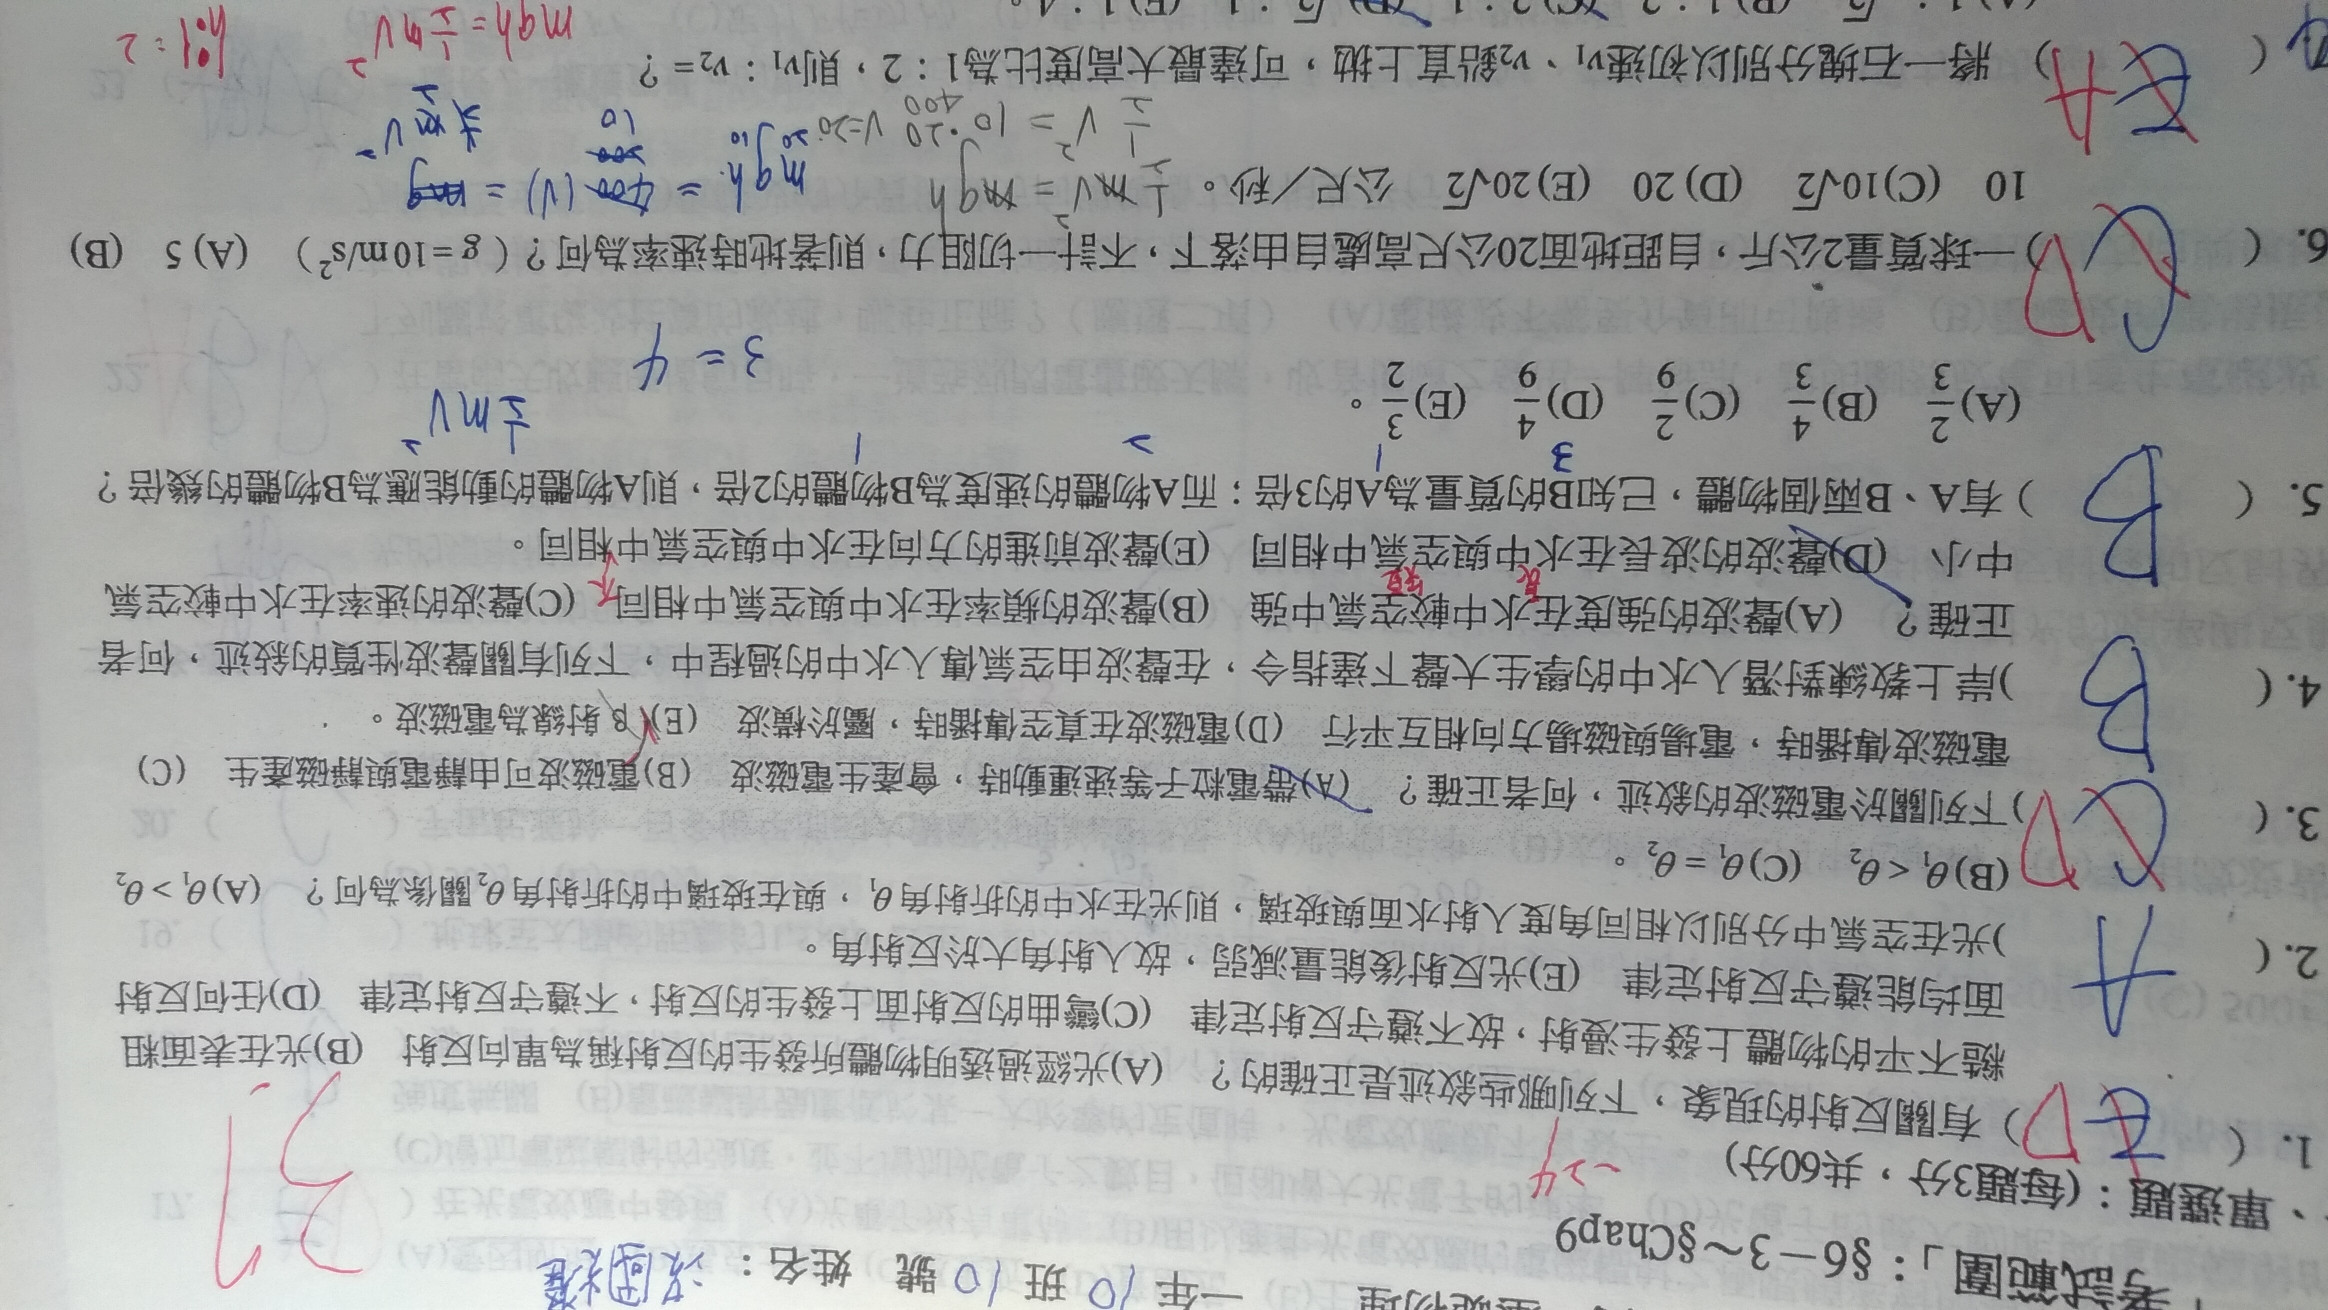 基礎物理 一年 10 班 10 號 姓名：
考試範圍」：§6－3～§Chap9
、單選題：(每題3分，共60分) -24
37
1. ( E D ) 有關反射的現象，下列哪些敘述是正確的？ (A)光經過透明物體所發生的反射稱為單向反射 (B)光在表面粗
糙不平的物體上發生漫射，故不遵守反射定律 (C)彎曲的反射面上發生的反射，不遵守反射定律 (D)任何反射
面均能遵守反射定律 (E)光反射後能量減弱，故入射角大於反射角。
2. ( A )光在空氣中分別以相同角度入射水面與玻璃，則光在水中的折射角θ₁，與在玻璃中的折射角θ₂關係為何？ (A)θ₁＞θ₂
(B)θ₁＜θ₂ (C)θ₁＝θ₂。
3. ( C D )下列關於電磁波的敘述，何者正確？ (A)帶電粒子等速運動時，會產生電磁波 (B)電磁波可由靜電與靜磁產生 (C)
電磁波傳播時，電場與磁場方向相互平行 (D)電磁波在真空傳播時，屬於橫波 (E)β射線為電磁波。
4. ( B )岸上教練對潛入水中的學生大聲下達指令，在聲波由空氣傳入水中的過程中，下列有關聲波性質的敘述，何者
正確？ (A)聲波的強度在水中較空氣中強 (B)聲波的頻率在水中與空氣中相同 (C)聲波的速率在水中較空氣
中小 (D)聲波的波長在水中與空氣中相同 (E)聲波前進的方向在水中與空氣中相同。
5. ( B )有A、B兩個物體，已知B的質量為A的3倍；而A物體的速度為B物體的2倍，則A物體的動能應為B物體的幾倍？
3 1 2 1 ½mv²
(A)2/3 (B)4/3 (C)2/9 (D)4/9 (E)3/2。
3=4
6. ( C D )一球質量2公斤，自距地面20公尺高處自由落下，不計一切阻力，則著地時速率為何？（g＝10m/s²） (A) 5 (B)
10 (C)10√2 (D) 20 (E)20√2 公尺／秒。 ½mv²=mgh
½v²=10·20 v=20
400
( E A ) 將一石塊分別以初速v₁、v₂鉛直上拋，可達最大高度比為1：2，則v₁：v₂＝？
mgh=½mv² h:1:2